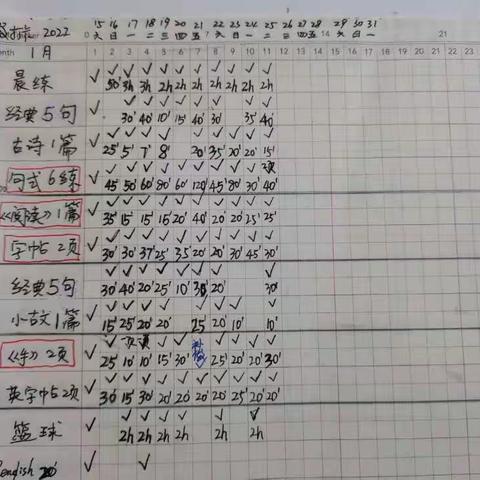 2022 15 16 17 18 19 20 21 22 23 24 25 26 27 28 29 30 31
六 日 一 二 三 四 五 六 日 一 二 三 四 五 六 日 一
month 1月 1 2 3 4 5 6 7 8 9 10 11 12 13 14 15 16 17 18 19 20 21 22 23
晨练 ✓ 50' 3h 3h 2h 2h 2h 2h 2h 2h 2h
经典5句 ✓ 30' 40' 10' 15' 40' 30' 35' 40'
古诗1篇 ✓ 25' 5' 7' 8' 20' 35' 20' 20' 15'
句式6练 ✓ 45' 50' 60' 80' 60' 120' 45' 80' 30' 40'
《阅读》1篇 ✓ 35' 15' 15' 15' 20' 40' 20' 20' 25' 25'
字帖2页 ✓ 30' 30' 37' 25' 35' 20' 20' 30' 45' 30'
经典5句 ✓ 30' 40' 20' 25' 10' 35' 20' 30'
小古文1篇 ✓ 15' 25' 20' 20' 25' 20' 10' 10'
2页 ✓ 25' 10' 10' 15' 30' 25' 20' 20' 30'
英字帖2页 ✓ 30' 15' 30' 20' 20' 20' 20' 25' 20' 20'
篮球 ✓ 2h 2h 2h 2h 2h 2h
English 20' ✓ ✓